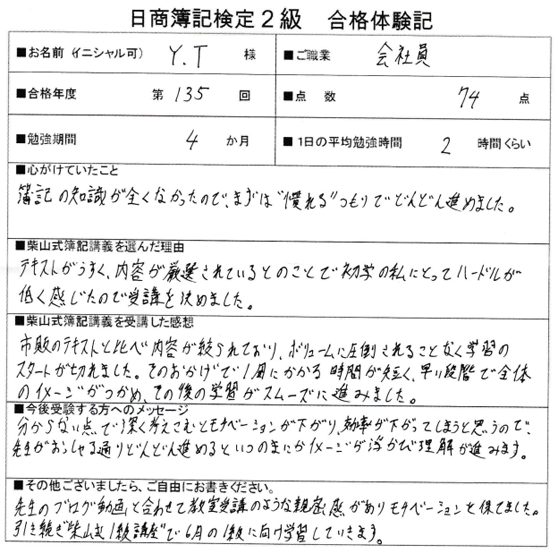 日商簿記検定2級 合格体験記
■お名前（イニシャル可） Y.T 様 ■ご職業 会社員
■合格年度 第135回 ■点数 74点
■勉強期間 4か月 ■1日の平均勉強時間 2時間くらい
■心がけていたこと
簿記の知識が全くなかったので、まずは"慣れる"つもりでどんどん進めました。
■柴山式簿記講義を選んだ理由
テキストがうすく、内容が厳選されているとのことで初学の私にとってハードルが
低く感じたので受講を決めました。
■柴山式簿記講義を受講した感想
市販のテキストと比べ内容が絞られており、ボリュームに圧倒されることなく学習の
スタートが切れました。そのおかげで1周にかかる時間が短く、早い段階で全体
のイメージがつかめ、その後の学習がスムーズに進みました。
■今後受験する方へのメッセージ
分からない点で深く考えこむとモチベーションが下がり、効率が下がってしまうと思うので、
先生がおっしゃる通りどんどん進めるといつのまにかイメージが浮かび理解が進みます。
■その他ございましたら、ご自由にお書きください。
先生のブログ動画と合わせて教室受講のような親密感がありモチベーションを保てました。
引き続き柴山式"1級講座"で6月の1級に向け学習していきます。